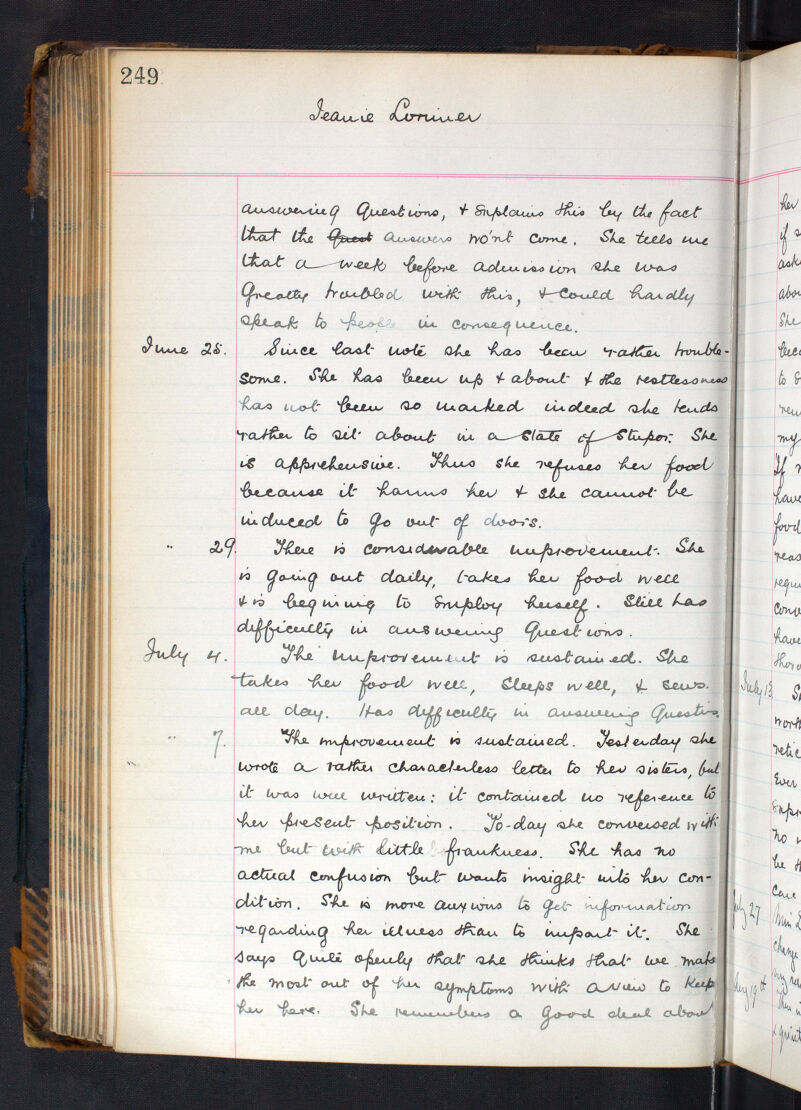 249
Jeanie Lorimer
answering Questions, & Explains this by the fact
that the Quest Answers wo'nt come. She tells me
that a week before admission she was
Greatly troubled with this, & Could hardly
speak to people in consequence.
June 25. Since last note she has been rather trouble-
some. She has been up & about & the restlessness
has not been so marked indeed she tends
rather to sit about in a State of Stupor. She
is apprehensive. Thus she refuses her food
because it harms her & she cannot be
induced to Go out of doors.
" 29. There is considerable improvement. She
is going out daily, takes her food well
& is beginning to Employ herself. Still has
difficulty in answering Questions.
July 4. The improvement is sustained. She
takes her food well, Sleeps well, & sews
all day. Has difficulty in answering Questions.
" 7. The improvement is sustained. Yesterday she
wrote a rather characterless letter to her sisters, but
it was well written: it contained no reference to
her present position. To-day she conversed with
me but with little frankness. She has no
actual confusion but wants insight into her con-
dition. She is more anxious to get information
regarding her illness than to impart it. She
says Quite openly that she thinks that we make
the most out of her symptoms with a view to keep
her here. She remembers a Good deal about
her
She
to
my
If
have
food
July 13
no
be
July 27